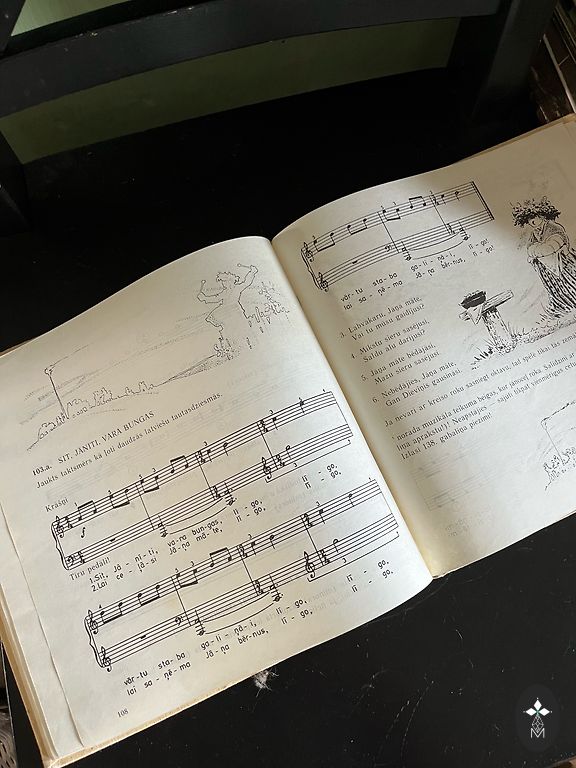 103.a. SIT, JĀNĪTI, VARA BUNGAS
Jaukts taktsmērs kā ļoti daudzās latviešu tautasdziesmās.
Krāšņi
f
Tīru pedāli!
1.Sit, Jā - nī - ti, va-ra bun-gas, lī - go, lī - go,
2.Lai ce - ļā-si Jā-ņa mā-te, lī - go, lī - go,
vār-tu sta-ba ga-li-ņā-i, lī-go, lī - go,
lai sa-ņē-ma Jā-ņa bēr-nus, lī-go, lī - go.
108
vār-tu sta-ba ga-li-ņā-i, lī-go!
lai sa-ņē-ma Jā-ņa bēr-nus, lī-go!
3. Labvakaru, Jāņa māte,
Vai tu mūsu gaidījusi?
4. Mīkstu sieru sasējusi,
Saldu alu darījusi?
5. Jāņa māte bēdājas,
Mazu sieru sasējusi.
6. Nebēdājies, Jāņa māte,
Gan Dieviņš gausinās.
Ja nevari ar kreiso roku sasniegt oktāvu, tad spēlē tikai tās
norāda muzikāla teikuma beigas, kur jānoņem roka.
Neapstājies — sajūti tāpat
Izlasi 138. gabaliņa piezīmi!
M